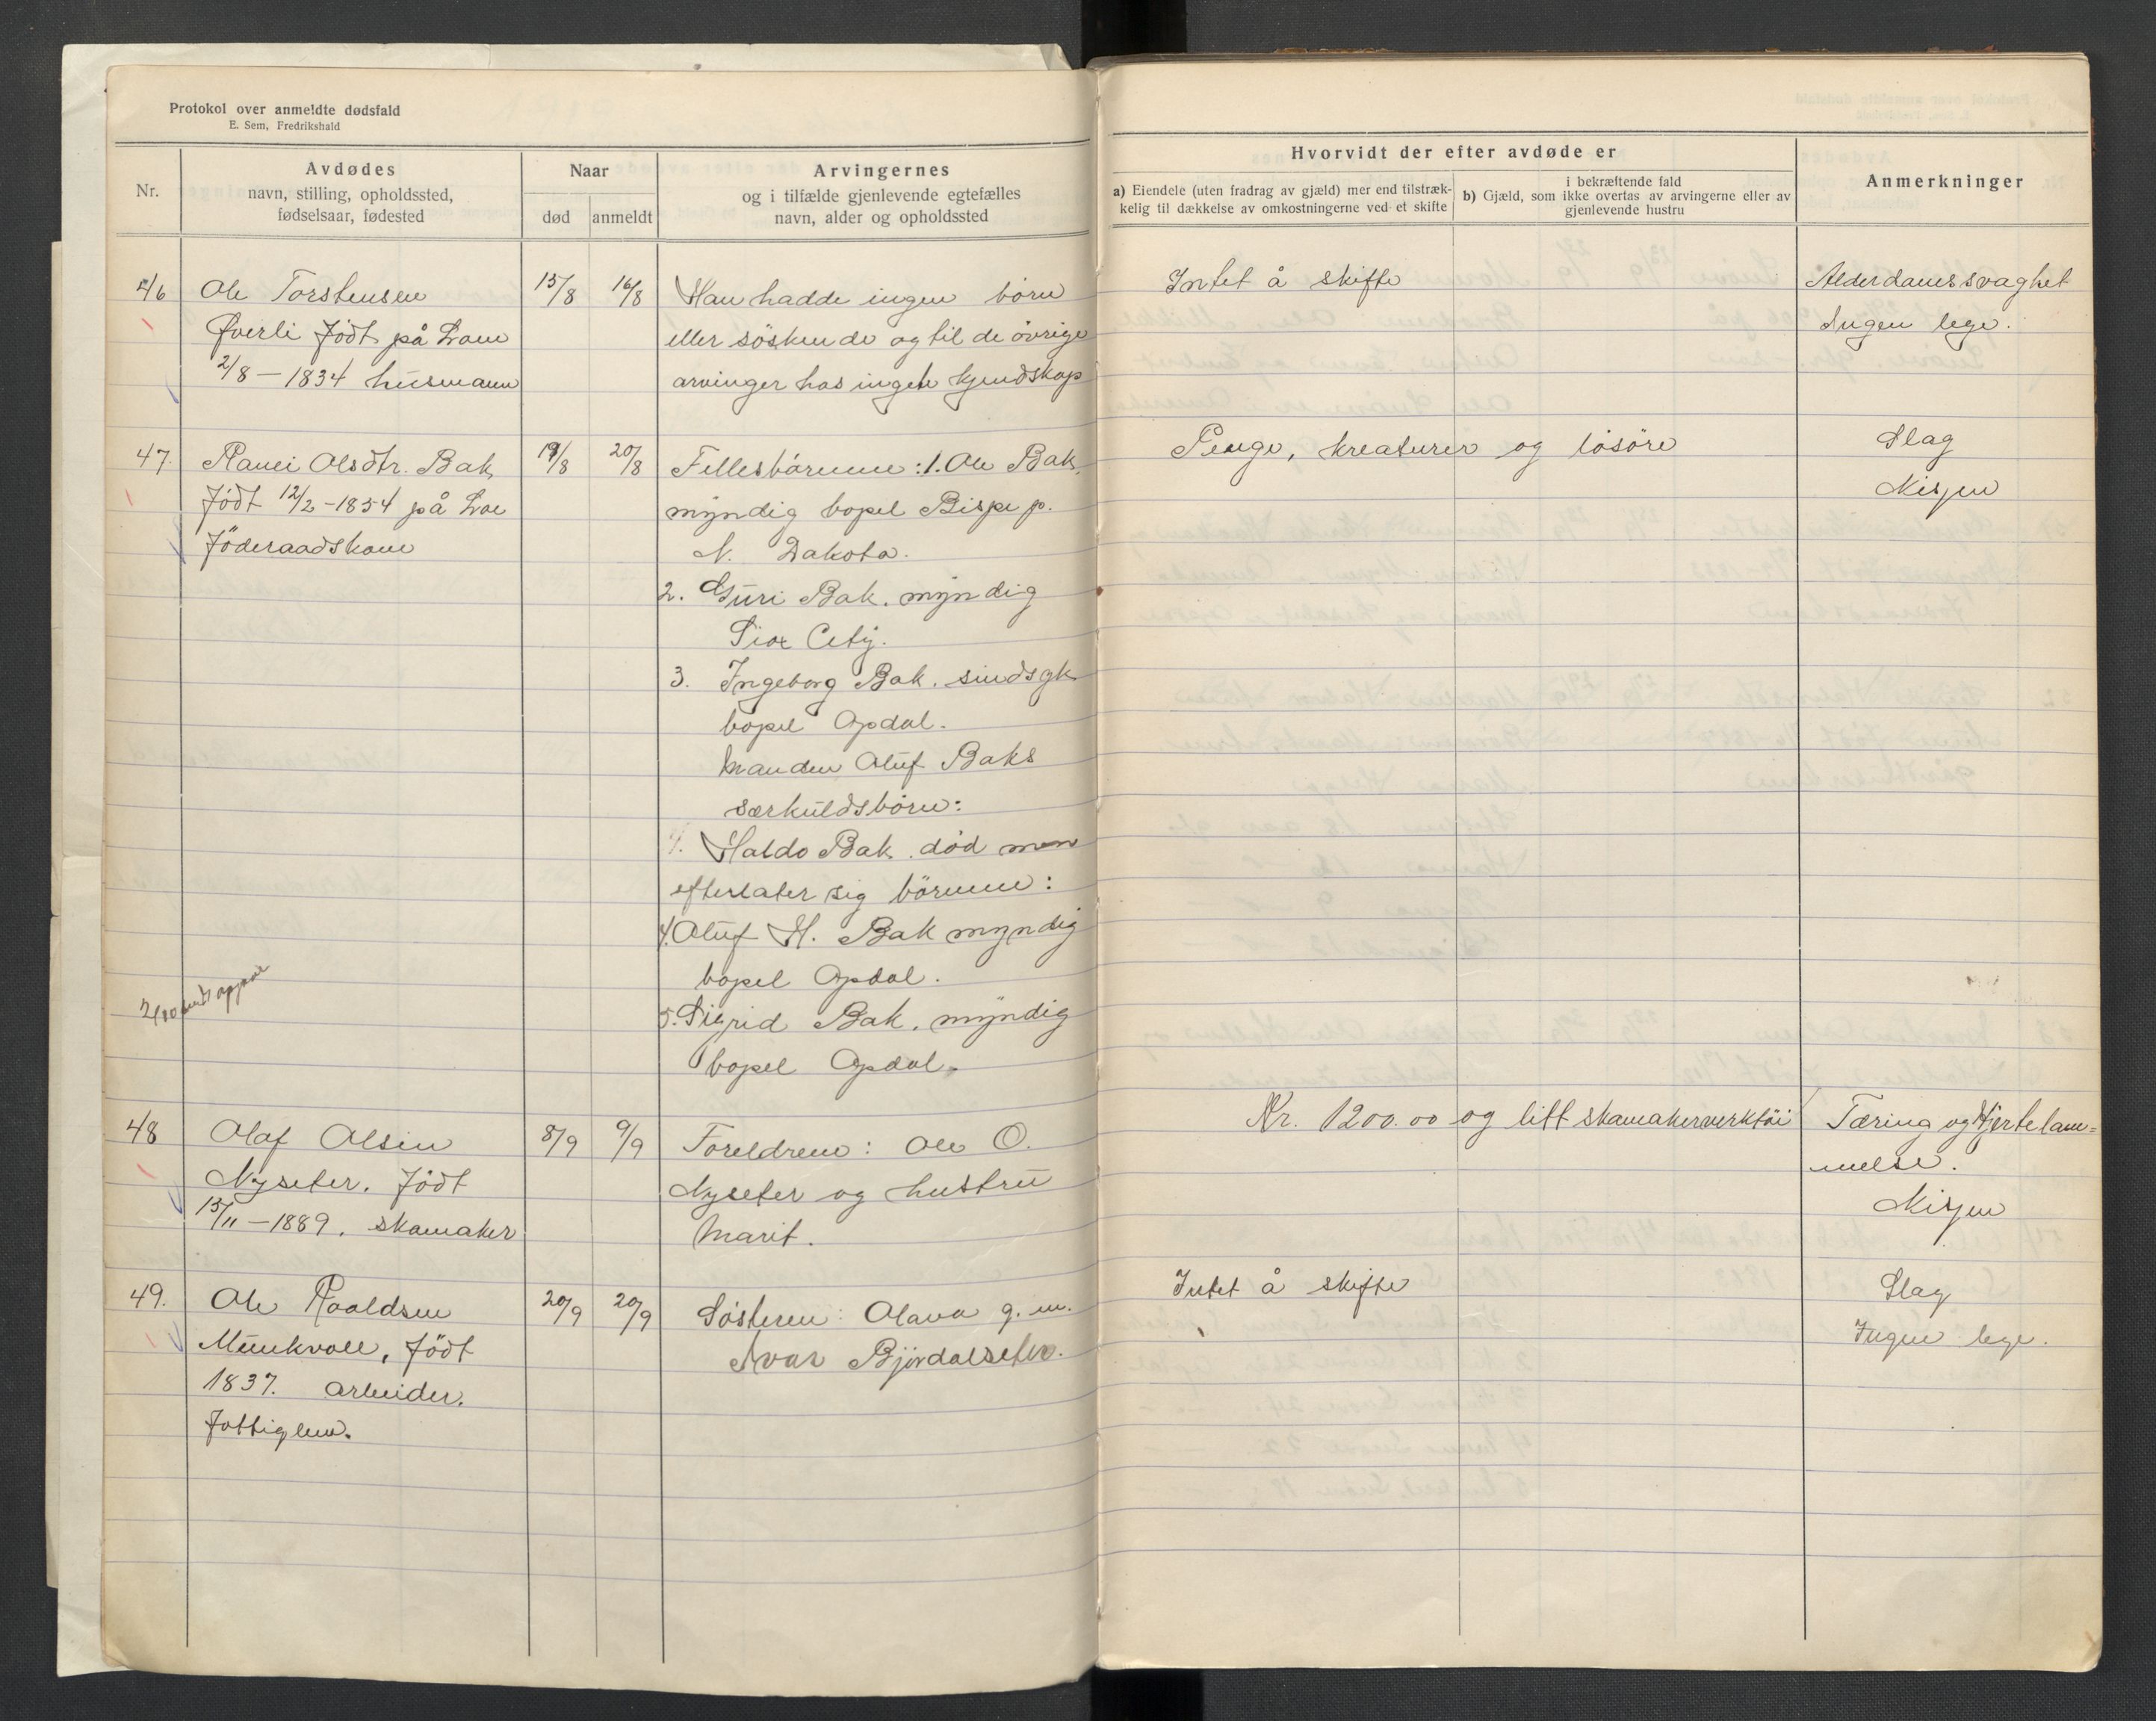 Protokol over anmeldte dødsfald
E. Sem, Fredrikshald
Nr.
Avdødes
navn, stilling, opholdssted,
fødselsaar, fødested
Naar
død
anmeldt
Arvingernes
og i tilfælde gjenlevende egtefælles
navn, alder og opholdssted
Hvorvidt der efter avdøde er
a) Eiendele (uten fradrag av gjæld) mer end tilstræk-
kelig til dækkelse av omkostningerne ved et skifte
i bekræftende fald
b) Gjæld, som ikke overtas av arvingerne eller av
gjenlevende hustru
Anmerkninger
46
Ole Torstensen
Øverli født på
2/8 – 1834 husmann
15/8
16/8
Han hadde ingen börn
eller söskende og til de övrige
arvinger has ingen kjendskap
Intet å skifte
Alderdomssvaghet
Ingen lege.
47.
Ranei Olsdtr. Bak
född 12/2 – 1854 på
föderaadskone
19/8
20/8
Fellesbarnene: 1. Ole Bak,
myndig bopel Bispe p.
N. Dakota.
2. Guri Bak. myndig
Siox City.
3. Ingeborg Bak. sindsyk
bopel Opdal.
Manden Oluf Baks
særkuldsbörn:
4. Haldo Bak. död men
efterlater sig börnene:
4. Oluf H. Bak myndig
bopel Opdal.
5. Sigrid Bak. myndig
bopel Opdal.
Penge, kreaturer og lösöre
Slag
Misjen
2/10
48
Olaf Olsen
Nyseter. född
15/11 – 1889. skomaker
8/9
9/9
Foreldrene: Ole O.
Nyseter og hustru
Marit.
Kr. 1200.00 og litt skomakerverktöi
Tæring og Hjertelam=
melse.
Misjen
49.
Ole Roaldsen
Munkvoll, född
1837. arbeider.
fattiglem.
20/9
20/9
Søsteren: Olava g. m.
Ivar Bjørdalseter.
Intet å skifte
Slag
Ingen lege.